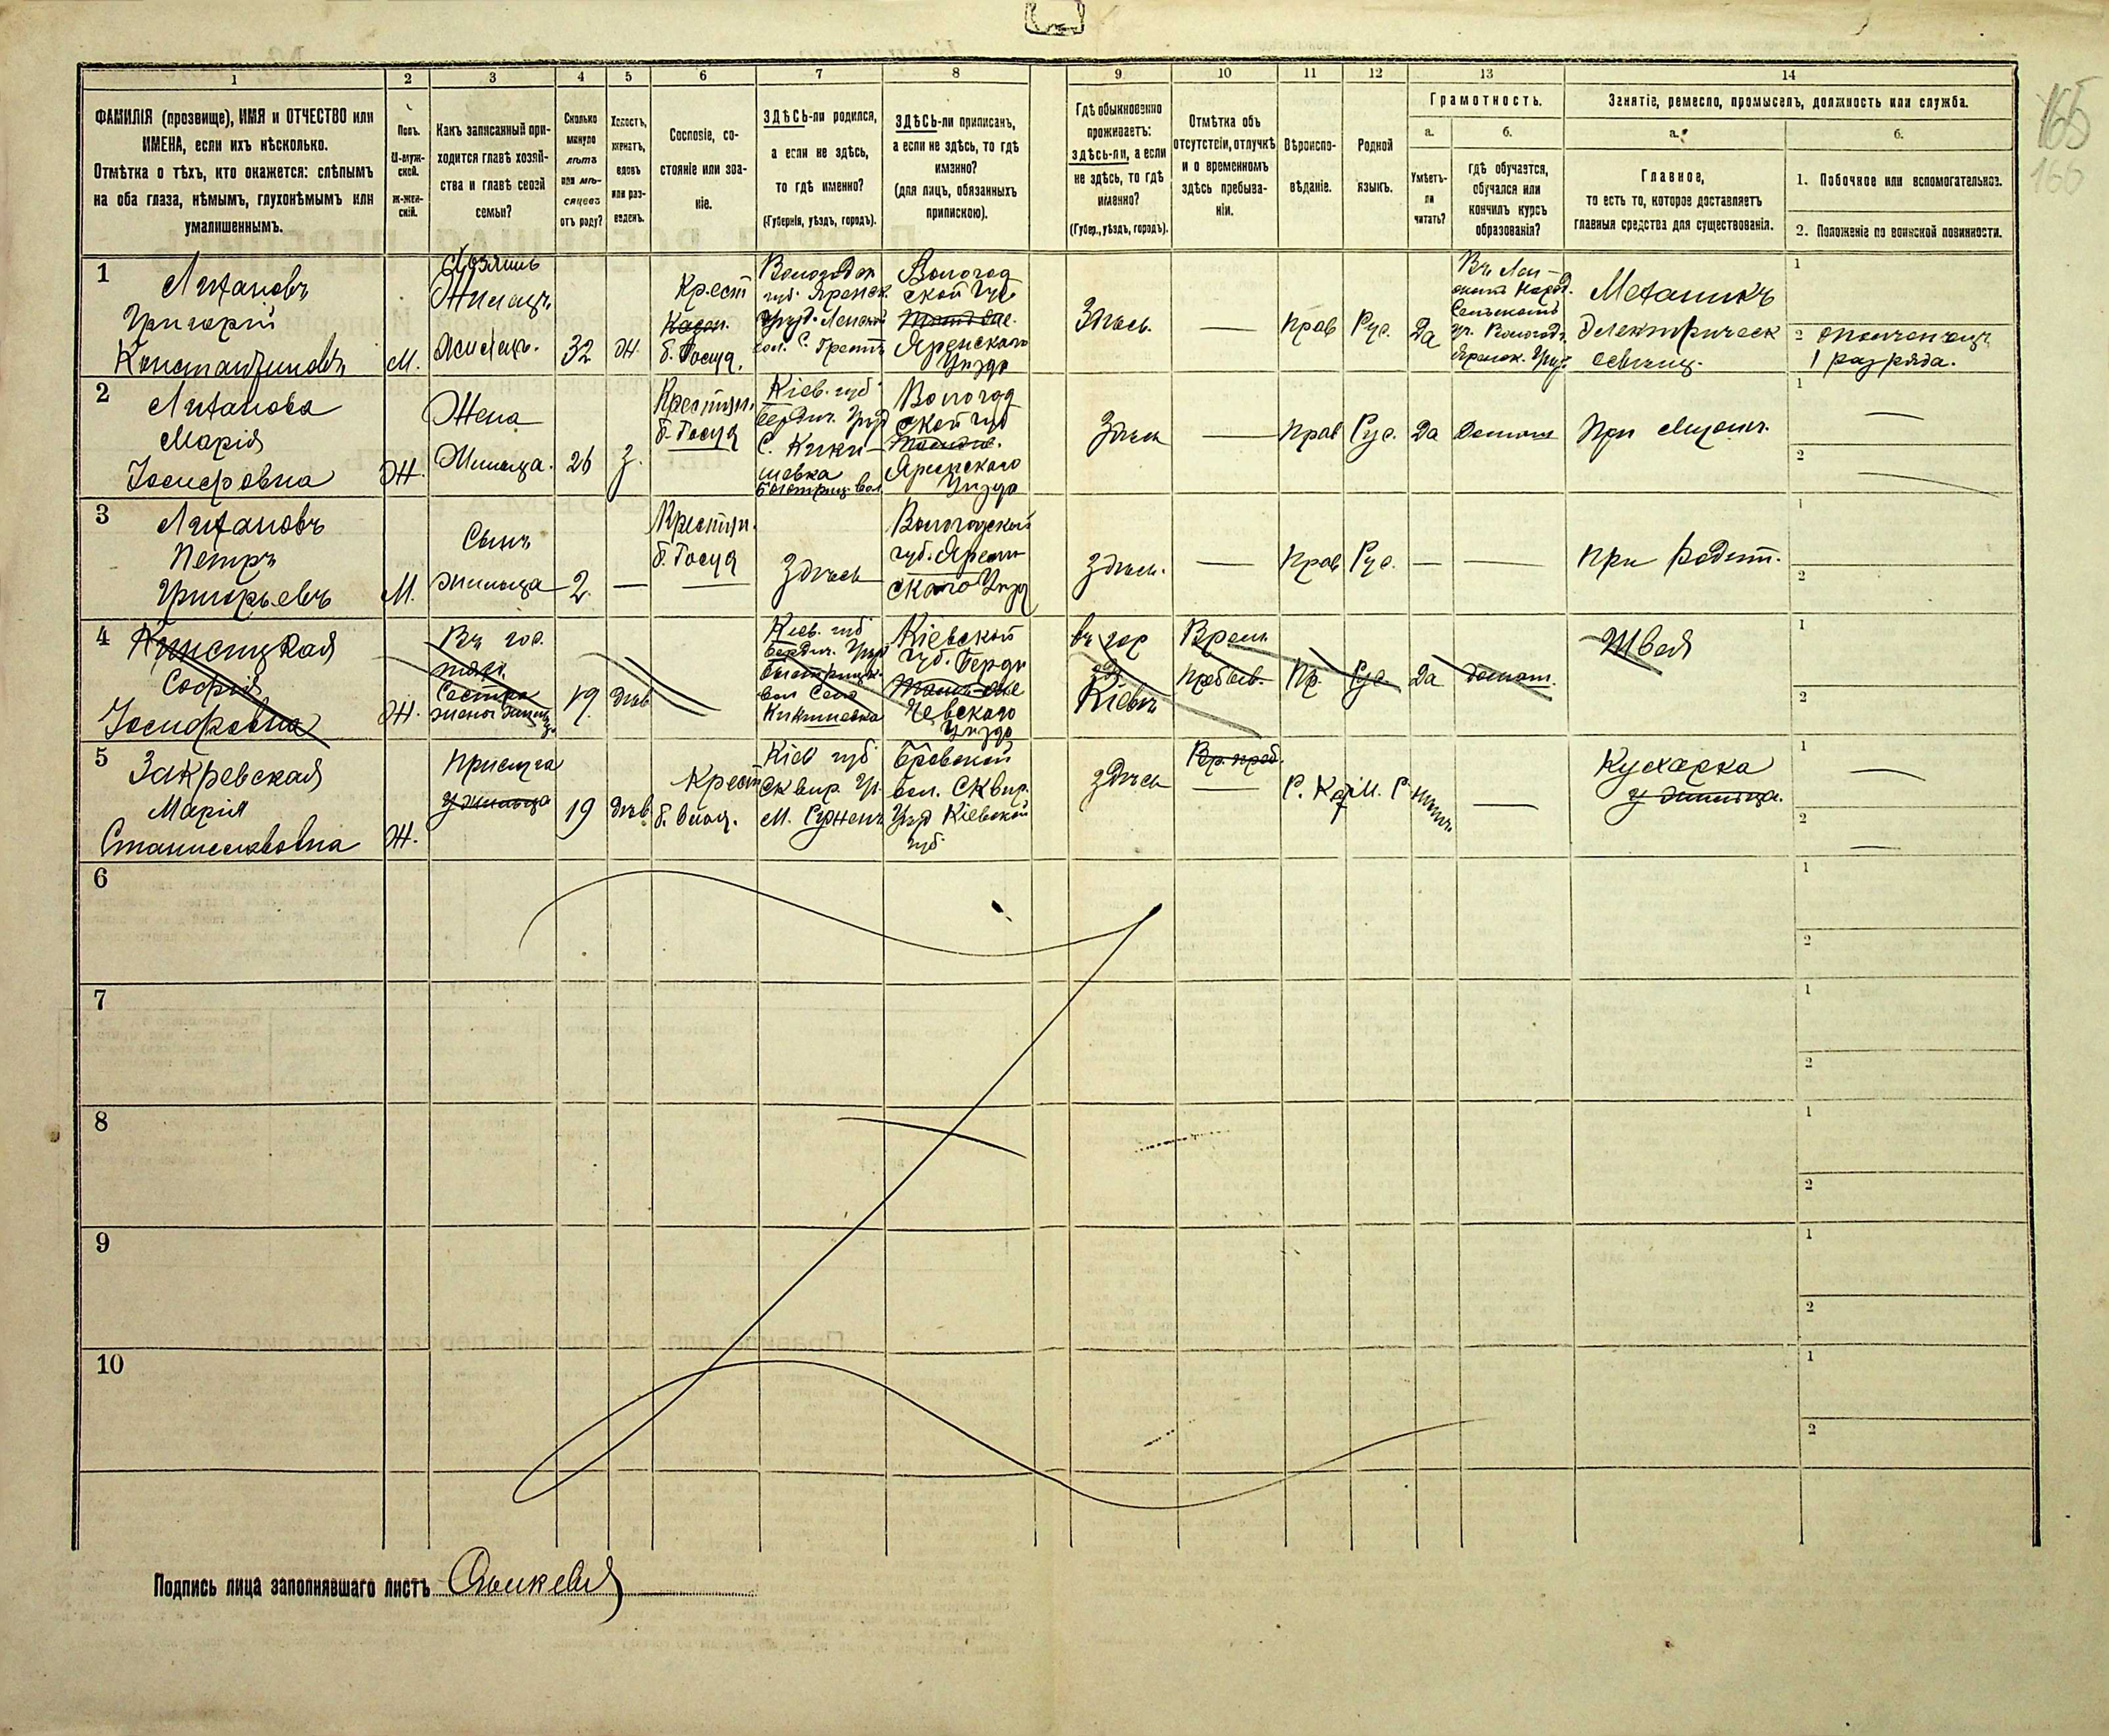 165
166
1 2 3 4 5 6 7 8 9 10 11 12 13 14
ФАМИЛІЯ (прозвище), ИМЯ и ОТЧЕСТВО или
ИМЕНА, если ихъ нѣсколько.
Отмѣтка о тѣхъ, кто окажется: слѣпымъ
на оба глаза, нѣмымъ, глухонѣмымъ или
умалишеннымъ.
Полъ.
М-муж-
ской.
Ж-жен-
скій.
Какъ записанный при-
ходится главѣ хозяй-
ства и главѣ своей
семьи?
Сколько
минуло
лѣтъ
или мѣ-
сяцевъ
отъ роду?
Холостъ,
женатъ,
вдовъ
или раз-
веденъ.
Сословіе, со-
стояніе или зва-
ніе.
ЗДѢСЬ-ли родился,
а если не здѣсь,
то гдѣ именно?
(Губернія, уѣздъ, городъ).
ЗДѢСЬ-ли приписанъ,
а если не здѣсь, то гдѣ
именно?
(для лицъ, обязанныхъ
припискою).
Гдѣ обыкновенно
проживаетъ:
здѣсь-ли, а если
не здѣсь, то гдѣ
именно?
(Губер., уѣздъ, городъ).
Отмѣтка объ
отсутствіи, отлучкѣ
и о временномъ
здѣсь пребыва-
ніи.
Вѣроиспо-
вѣданіе.
Родной
языкъ.
Грамотность.
а.
Умѣетъ-
ли
читать?
б.
Гдѣ обучается,
обучался или
кончилъ курсъ
образованія?
Занятіе, ремесло, промыселъ, должность или служба.
а.
Главное,
то есть то, которое доставляетъ
главныя средства для существованія.
б.
1. Побочное или вспомогательное.
2. Положеніе по воинской повинности.
1
Григорій
Константиновъ
М.
Хозяинъ
Жилецъ
Жилецъ.
32
Ж.
Крест
Казен.
б. Госуд.
губ. Яренск.
Вологод
ской губ
Яренского
Уѣзда
Здѣсь.
—
прав
Рус.
Да
Механикъ
Электрическ
освѣщ.
1
2 ополченецъ
1 разряда.
2
Марія
Іосифовна
Ж.
Жена
Жильца.
26
З.
Крестьян.
б. Госуд
Кіев. губ
Бердич. Уѣзд
С. Кики-
шевка
Быстриц. вол.
Вологод
ской губ
Яренского
Уѣзда
Здѣсь
—
прав
Рус.
Да
Домаш
При мужѣ.
1 —
2
3
Петръ
Григорьевъ
М.
Сынъ
жильца
2.
—
Крестьян.
б. Госуд
Здѣсь
Вологодской
губ. Ярен
ского Уѣзд
Здѣсь.
—
Прав
Рус.
—
—
При родит.
1
2
4
Софія
Іосифовна
Ж.
Въ гос.
Сестра
жены жильца
19
дѣв
Кіев. губ
Бердич. Уѣзд
Быстрицк.
вол Село
Кикишевка
Кіевской
губ. Берди
чевского
Уѣзда
въ гор
Кіевѣ
Врем.
пребыв.
Пр.
Рус.
Да
домаш.
Швея
1
2
5 Закревская
Марія
Станиславовна
Ж.
Прислуга
у жильца
19
дѣв
Крест
Кіев губ
Сквир. Уѣ.
вол. Сквир.
Уѣзд Кіевской
губ.
здѣсь
Вр. преб.
—
Р. Кат.
—
Кухарка
у жильца.
1 —
2 —
6
1
2
7
1
2
8
1
2
9
1
2
10
1
2
Подпись лица заполнявшаго листъ